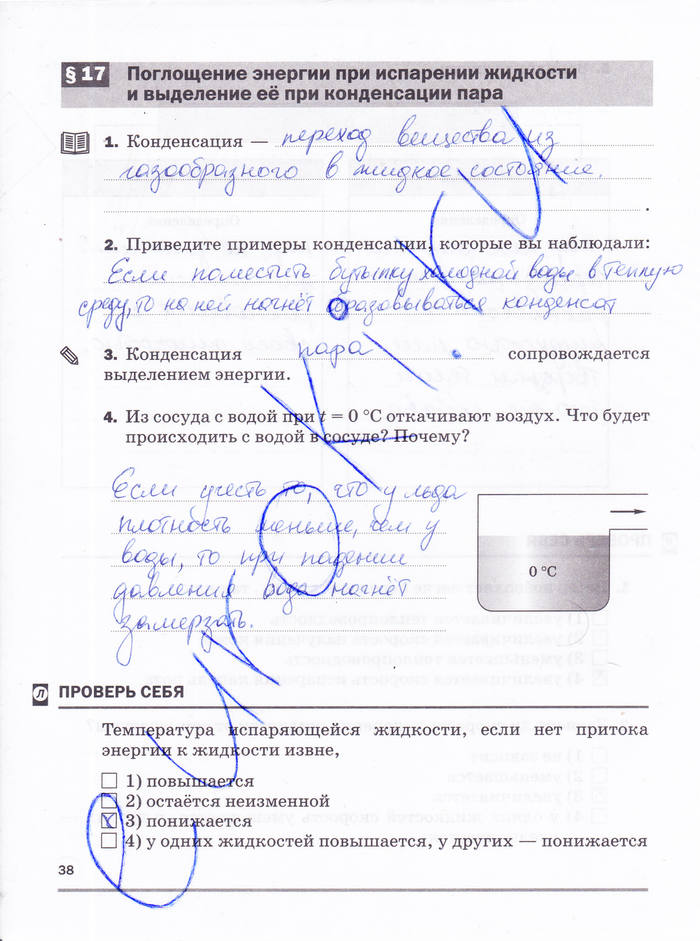 § 17 Поглощение энергии при испарении жидкости
и выделение её при конденсации пара
1. Конденсация — переход вещества из
газообразного в жидкое состояние.
2. Приведите примеры конденсации, которые вы наблюдали:
Если поместить бутылку холодной воды в теплую
среду, то на ней начнёт образовываться конденсат
3. Конденсация пара сопровождается
выделением энергии.
4. Из сосуда с водой при t = 0 °C откачивают воздух. Что будет
происходить с водой в сосуде? Почему?
Если учесть то, что у льда
плотность меньше, чем у
воды, то при падении
давления вода начнёт
замерзать.
0 °C
Л ПРОВЕРЬ СЕБЯ
Температура испаряющейся жидкости, если нет притока
энергии к жидкости извне,
1) повышается
2) остаётся неизменной
3) понижается
4) у одних жидкостей повышается, у других — понижается
38